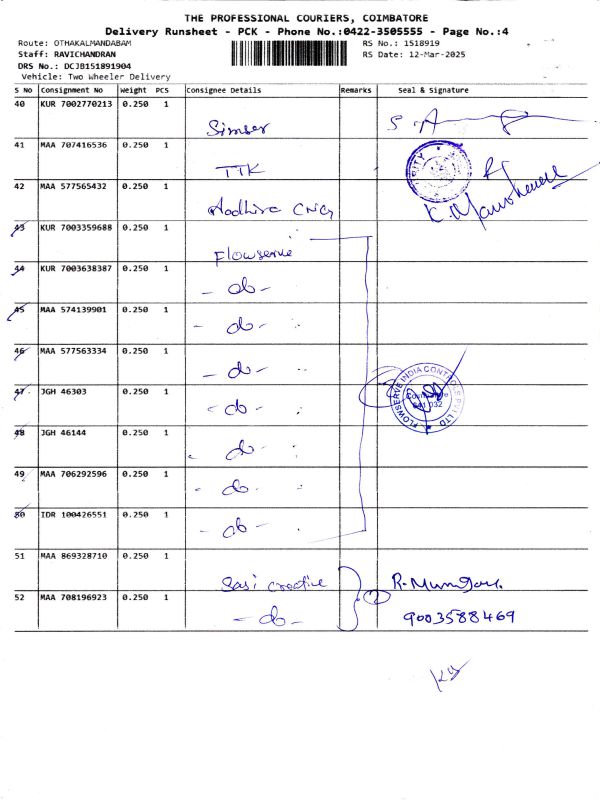 THE PROFESSIONAL COURIERS, COIMBATORE
Delivery Runsheet - PCK - Phone No.:0422-3505555 - Page No.:4
Route: OTHAKALMANDABAM RS No.: 1518919
Staff: RAVICHANDRAN RS Date: 12-Mar-2025
DRS No.: DCJB151891904
Vehicle: Two Wheeler Delivery
S No Consignment No Weight PCS Consignee Details Remarks Seal & Signature
40 KUR 7002770213 0.250 1
41 MAA 707416536 0.250 1 TTK
42 MAA 577565432 0.250 1 Aadhira CNG
43 KUR 7003359688 0.250 1 Flowserve
44 KUR 7003638387 0.250 1 - do -
45 MAA 574139901 0.250 1 - do -
46 MAA 577563334 0.250 1 - do -
47 JGH 46303 0.250 1 - do -
FLOWSERVE INDIA CONTROLS PVT LTD
48 JGH 46144 0.250 1 - do -
49 MAA 706292596 0.250 1 - do -
50 IDR 100426551 0.250 1 - do -
51 MAA 869328710 0.250 1 Sasi Creative
52 MAA 708196923 0.250 1 - do - 2 9003588469